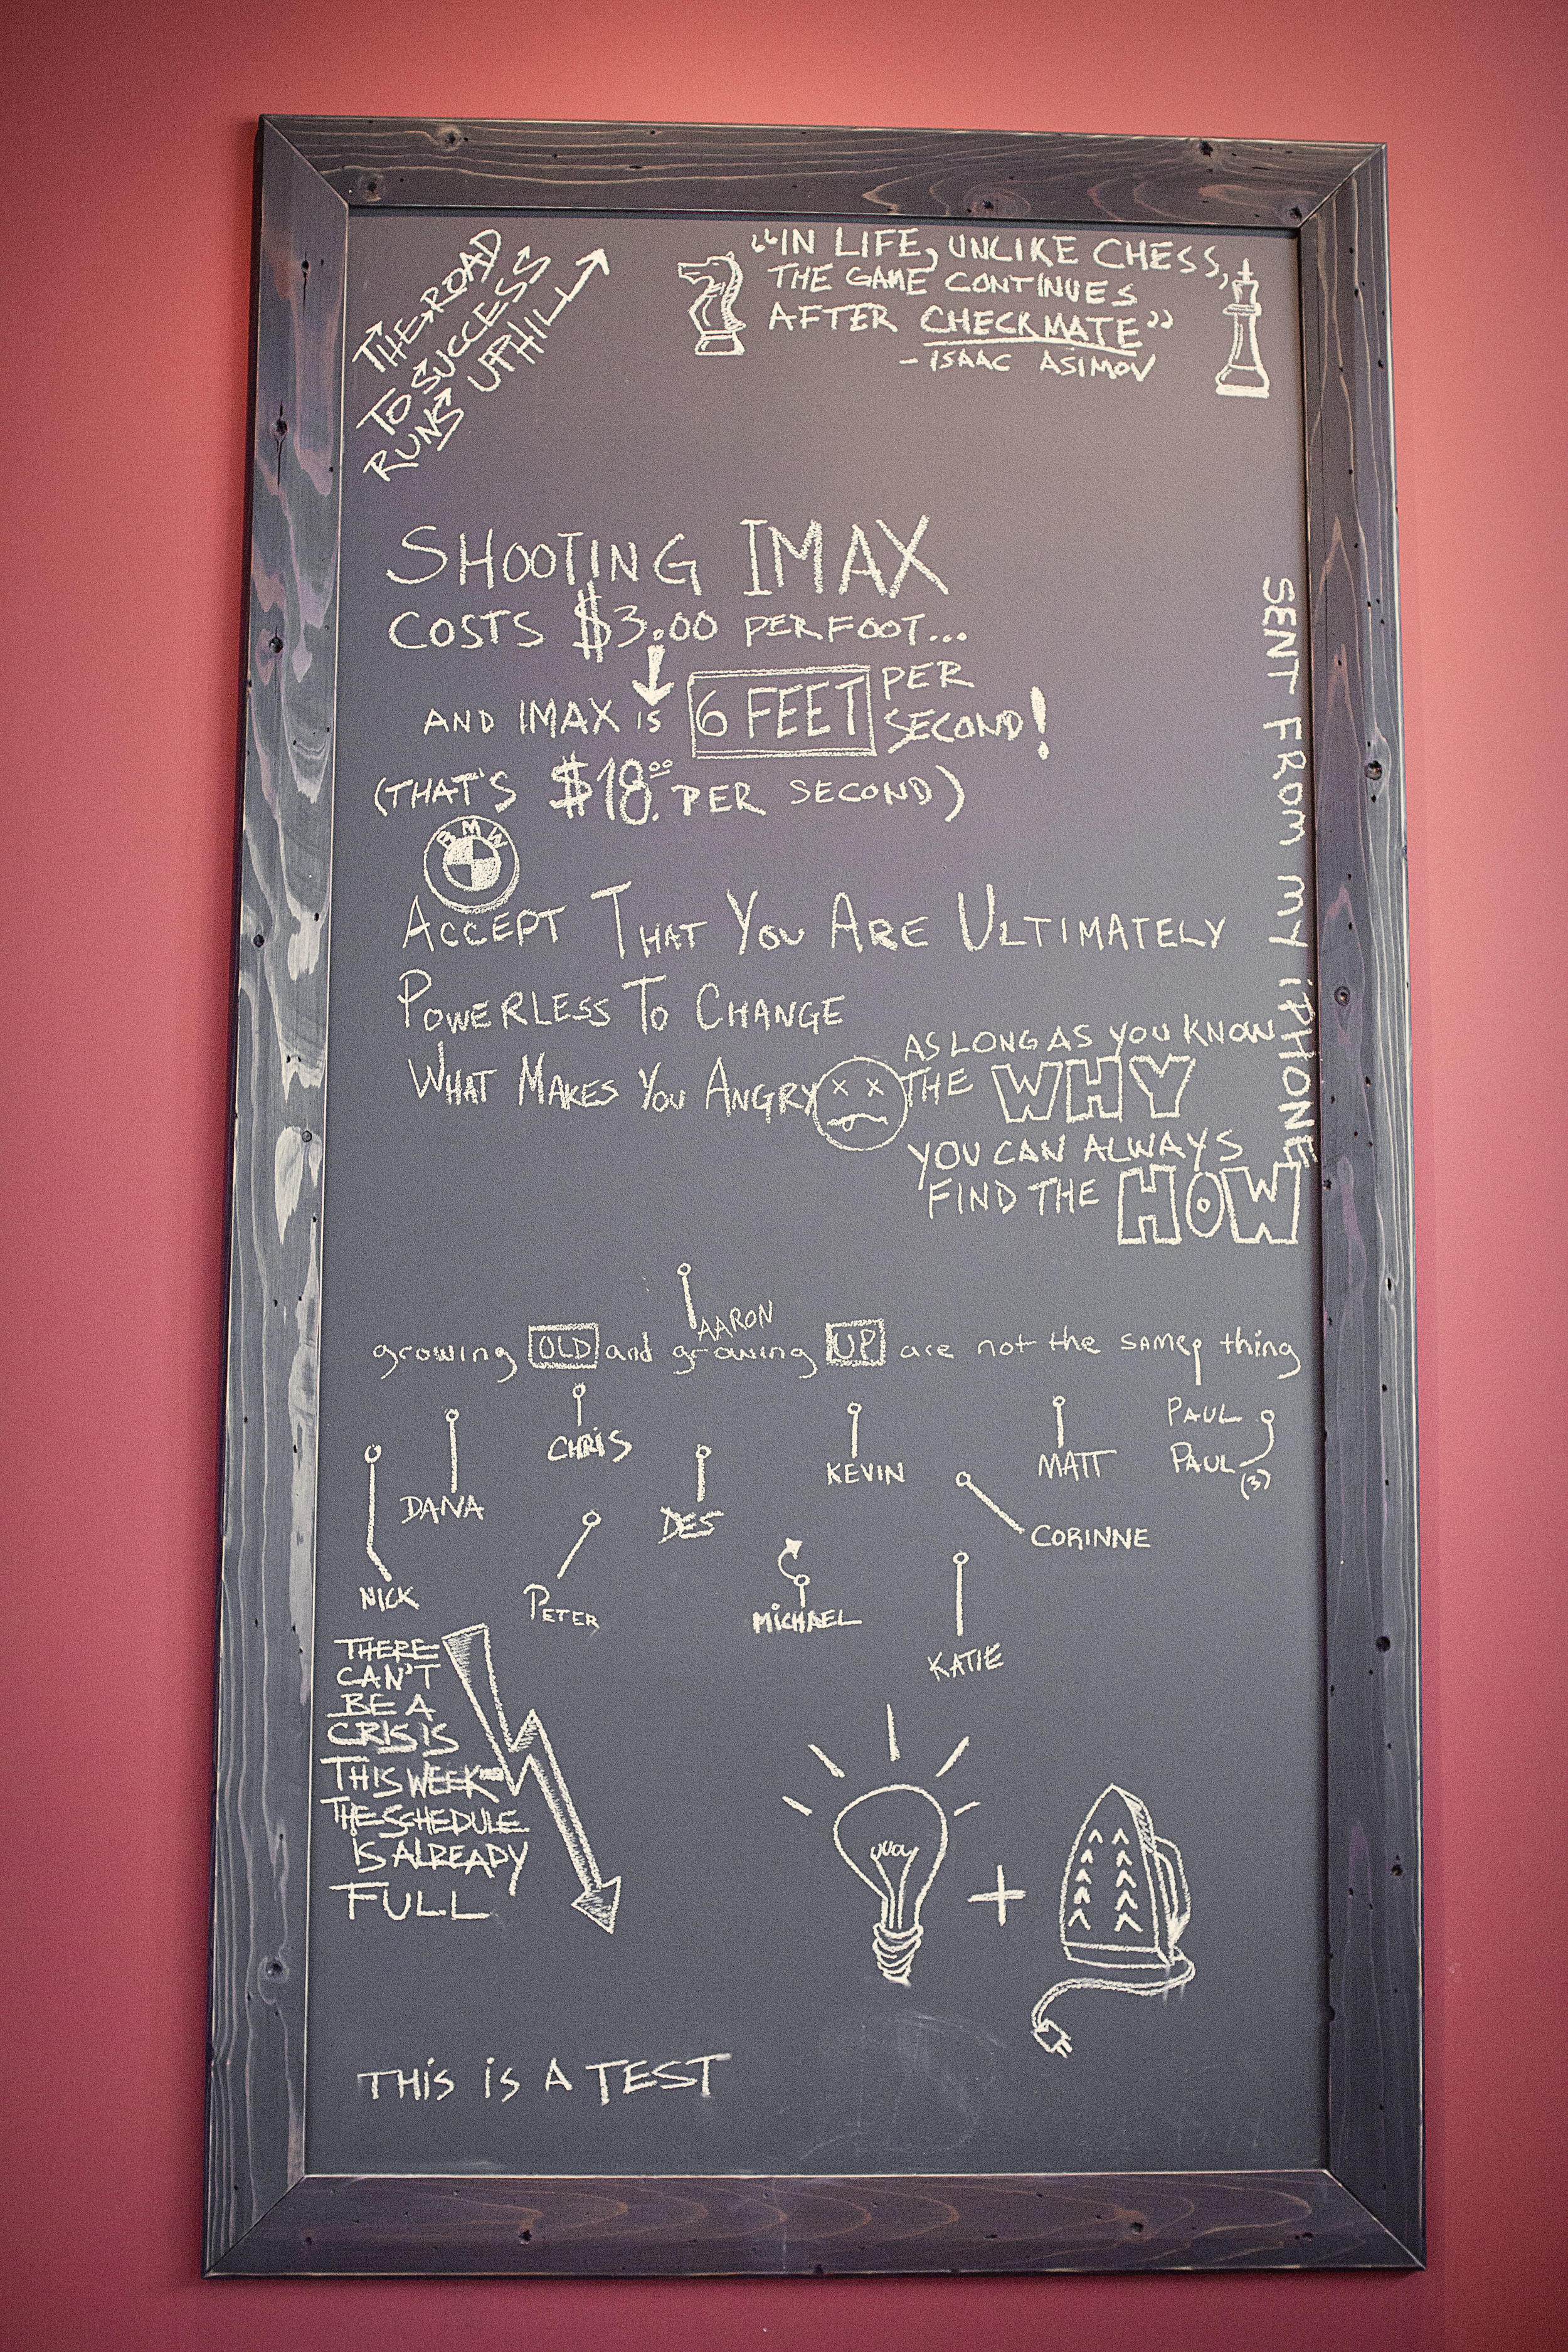 THE ROAD
TO SUCCESS
RUNS UPHILL
"IN LIFE, UNLIKE CHESS,
THE GAME CONTINUES
AFTER CHECKMATE"
- ISAAC ASIMOV
SHOOTING IMAX
COSTS $3.00 PER FOOT...
AND IMAX IS 6 FEET PER SECOND!
(THAT'S $18.00 PER SECOND)
BMW
SENT FROM MY iPHONE
ACCEPT THAT YOU ARE ULTIMATELY
POWERLESS TO CHANGE
WHAT MAKES YOU ANGRY
AS LONG AS YOU KNOW
THE WHY
YOU CAN ALWAYS
FIND THE HOW
AARON
growing OLD and growing UP are not the same thing
CHRIS
KEVIN
MATT
PAUL
PAUL
(3)
DANA
DES
CORINNE
NICK
PETER
MiCHAEL
KATIE
THERE
CAN'T
BE A
CRISIS
THIS WEEK-
THE SCHEDULE
IS ALREADY
FULL
THiS iS A TEST